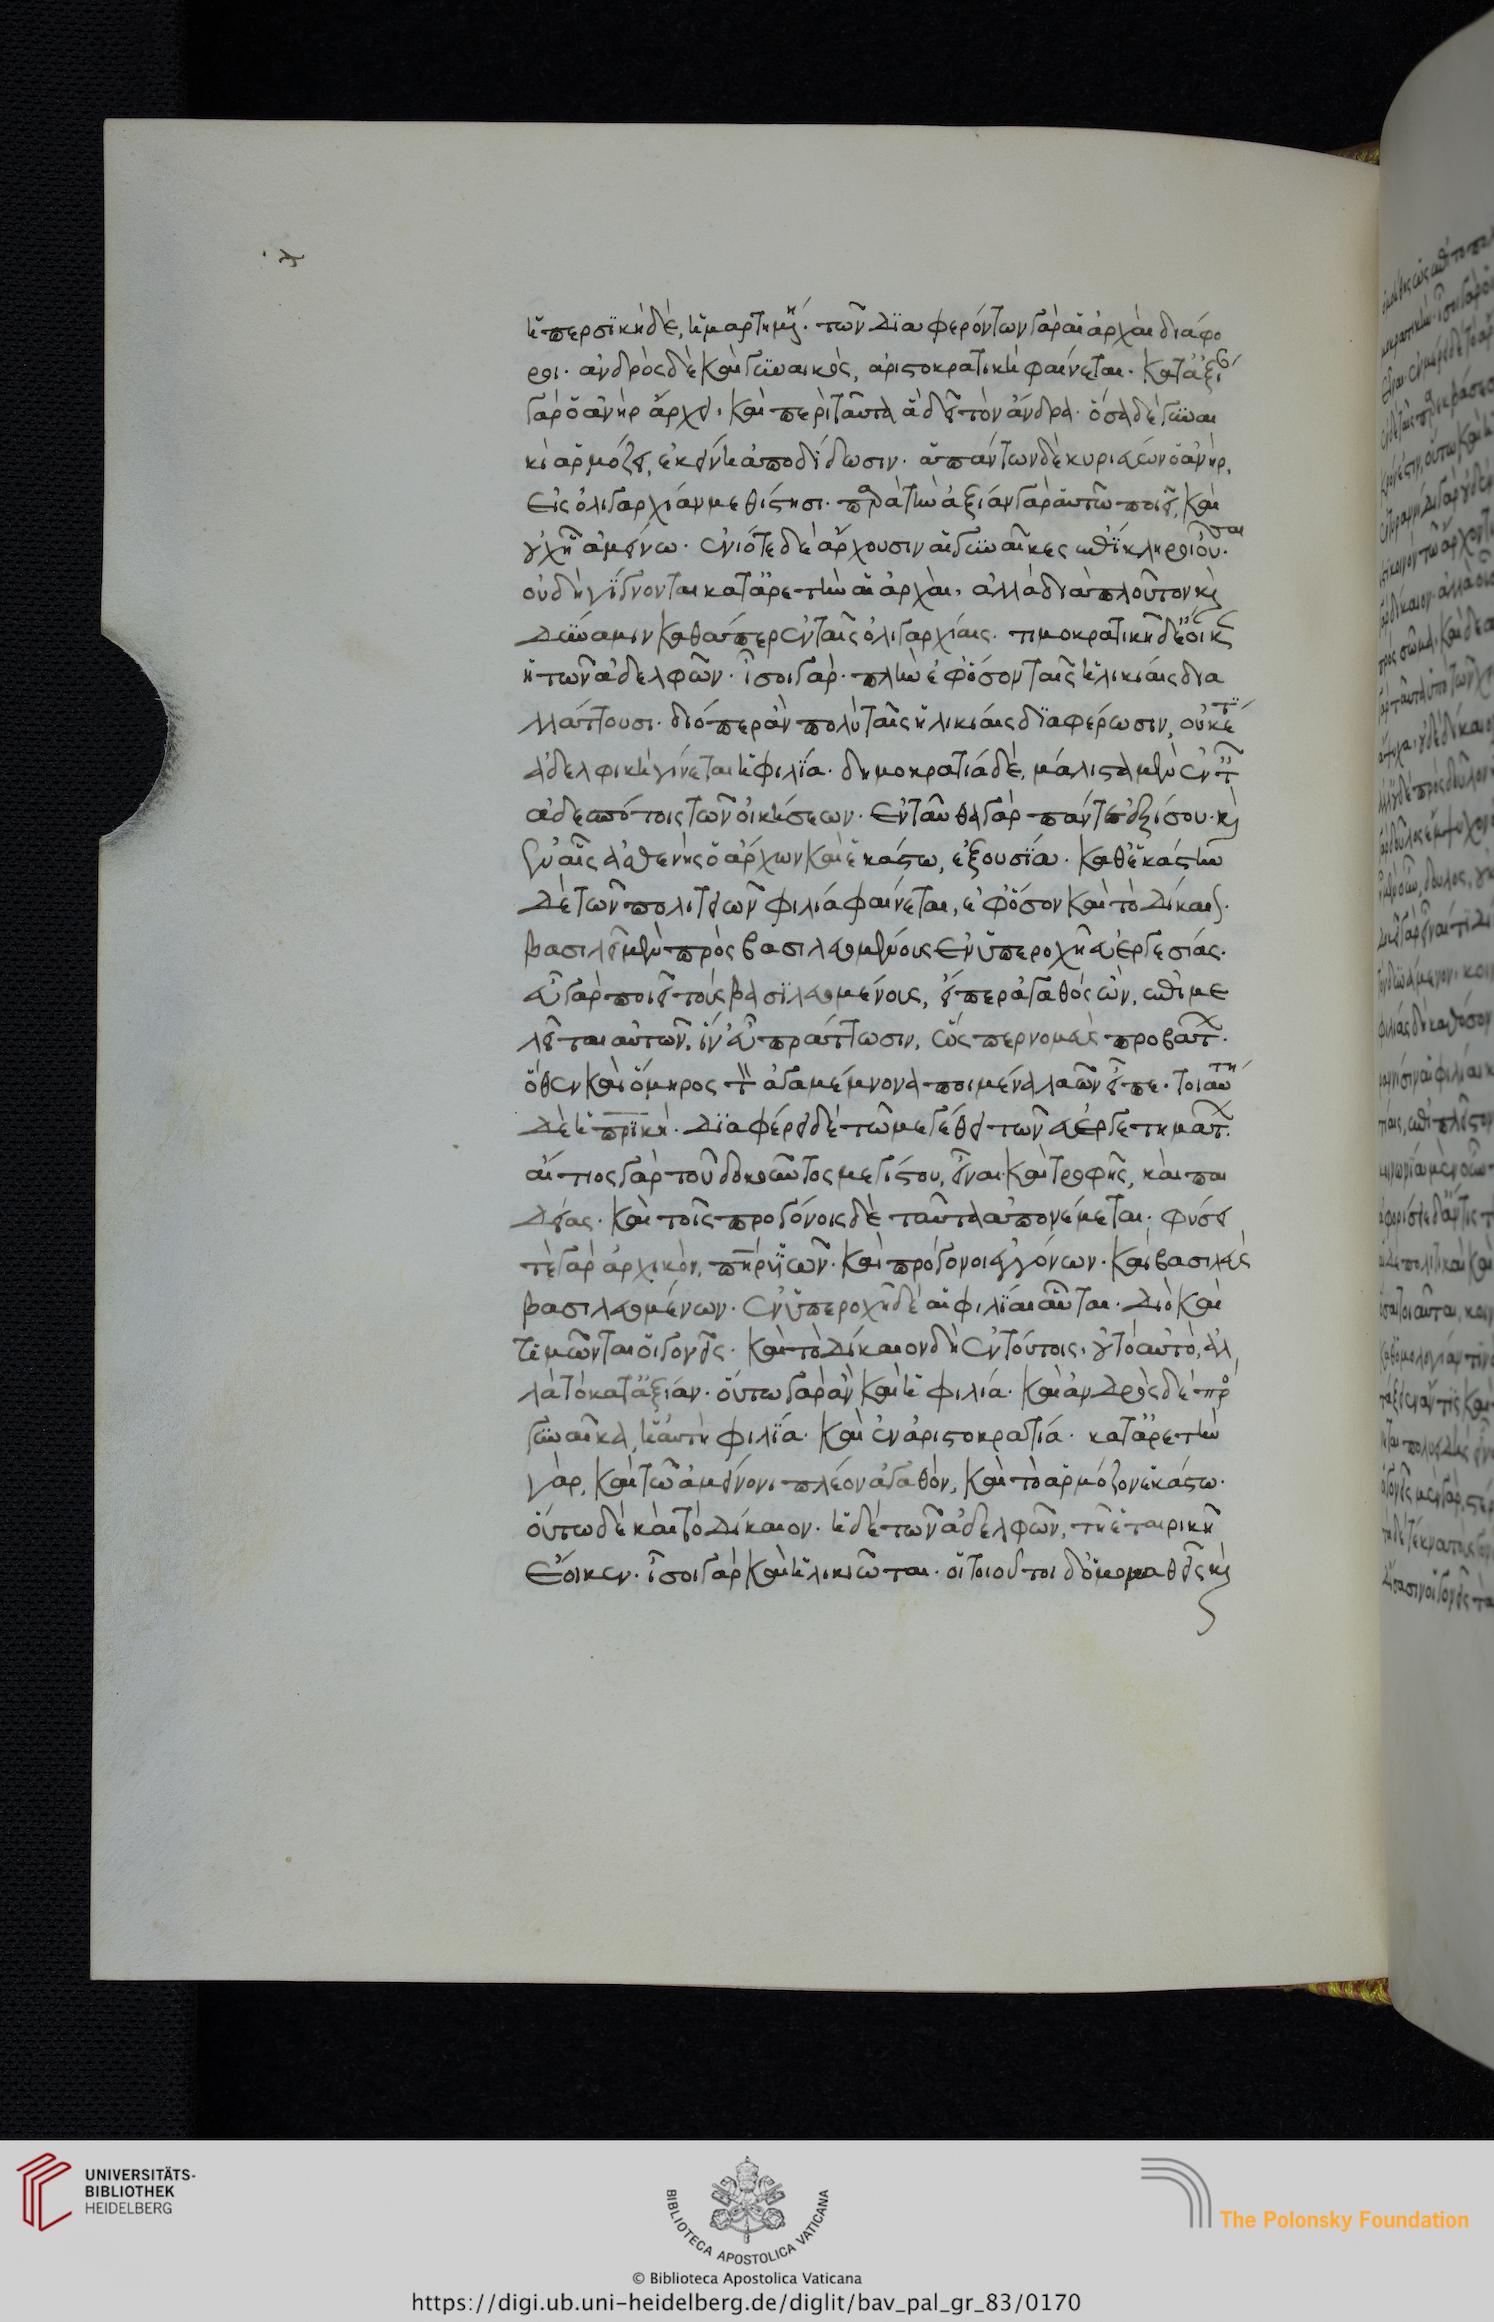 ἡ περσικὴ δέ, ἡμαρτημένη. τῶν διαφερόντων γὰρ αἱ ἀρχαὶ διάφο
ροι. ἀνδρὸς δὲ καὶ γυναικὸς, ἀριστοκρατικὴ φαίνεται. κατ' ἀξίαν
γὰρ ὁ ἀνὴρ ἄρχει. καὶ περὶ ταῦτα ἃ δεῖ τὸν ἄνδρα. ὅσα δὲ γυναι
κὶ ἁρμόζει, ἐκείνη ἀποδίδωσιν. ἁπάντων δὲ κυριεύων ὁ ἀνὴρ,
εἰς ὀλιγαρχίαν μεθίστησι. παρὰ τὴν ἀξίαν γὰρ αὐτῶ ποιεῖ, καὶ
οὐχ ἧ ἀμείνω. ἐνιότε δὲ ἄρχουσιν αἱ γυναῖκες ἐπίκληροι οὖσαι.
οὐ δὴ γίγνονται κατ' ἀρετὴν αἱ ἀρχαὶ. ἀλλὰ διὰ πλοῦτον καὶ
δύναμιν καθάπερ ἐν ταῖς ὀλιγαρχίαις. τιμοκρατικῆ δ' ἔοικεν
ἡ τῶν ἀδελφῶν. ἴσοι γὰρ. πλὴν ἐφ' ὅσον ταῖς ἡλικίαις δια
λλάττουσι. διόπερ ἂν πολὺ ταῖς ἡλικίαις διαφέρωσιν, οὐκέτι
ἀδελφικὴ γίνεται ἡ φιλία. δημοκρατία δέ, μάλιστα μὲν ἐν ταῖς
ἀδεσπότοις τῶν οἰκήσεων. ἐνταῦθα γὰρ πάντες ἐξίσου. καὶ
ἐν αἷς ἀσθενὴς ὁ ἄρχων καὶ ἑκάστω, ἐξουσία. καθ' ἑκάστην
δὲ τῶν πολιτειῶν φιλία φαίνεται, ἐφ' ὅσον καὶ τὸ δίκαιον.
βασιλεῖ μὲν πρὸς βασιλευομένους ἐν ὑπεροχῆ εὐεργεσίας.
εὖ γὰρ ποιεῖ τοὺς βασιλευομένους, εἴπερ ἀγαθὸς ὢν, ἐπιμε
λεῖται αὐτῶν, ἵν' εὖ πράττωσιν, ὥσπερ νομεὺς προβάτων.
ὅθεν καὶ ὅμηρος τὸν ἀγαμέμνονα ποιμένα λαῶν εἶπε. τοιαύτη
δὲ ἡ πρικὴ. διαφέρει δὲ τῶ μεγέθει τῶν εὐεργετημάτων.
αἴτιος γὰρ τοῦ δοκοῦντος μεγίστου, εἶναι. καὶ τροφῆς, καὶ παι
δείας. καὶ τοῖς προγόνοις δὲ ταῦτα ἀπονέμεται. φύσει
τὲ γὰρ ἀρχικὸν, πὴρ υἱῶν. καὶ πρόγονοι ἐγγόνων. καὶ βασιλεὺς
βασιλευομένων. ἐν ὑπεροχῆ δὲ αἱ φιλίαι αὗται. διὸ καὶ
τιμῶνται οἱ γονεῖς. καὶ τὸ δίκαιον δὴ ἐν τούτοις, οὐ τὸ αὐτὸ, ἀλ
λὰ τὸ κατ' ἀξίαν. οὕτω γὰρ ἂν καὶ ἡ φιλία. καὶ ἀνδρὸς δὲ πρὸς
γυναῖκα, ἡ αὐτὴ φιλία. καὶ ἐν ἀριστοκρατία. κατ' ἀρετὴν
γὰρ, καὶ τῶ ἀμείνονι πλέον ἀγαθὸν, καὶ τὸ ἁρμόζον ἑκάστω.
οὕτω δὲ καὶ τὸ δίκαιον. ἡ δὲ τῶν ἀδελφῶν, τῆ ἑταιρικῆ
ἔοικεν. ἴσοι γὰρ καὶ ἡλικιῶται. οἱ τοιοῦτοι δ' ὁμοομαθεῖς καὶ
UNIVERSITÄTS-
BIBLIOTHEK
HEIDELBERG
BIBLIOTECA APOSTOLICA VATICANA
The Polonsky Foundation
© Biblioteca Apostolica Vaticana
https://digi.ub.uni-heidelberg.de/diglit/bav_pal_gr_83/0170